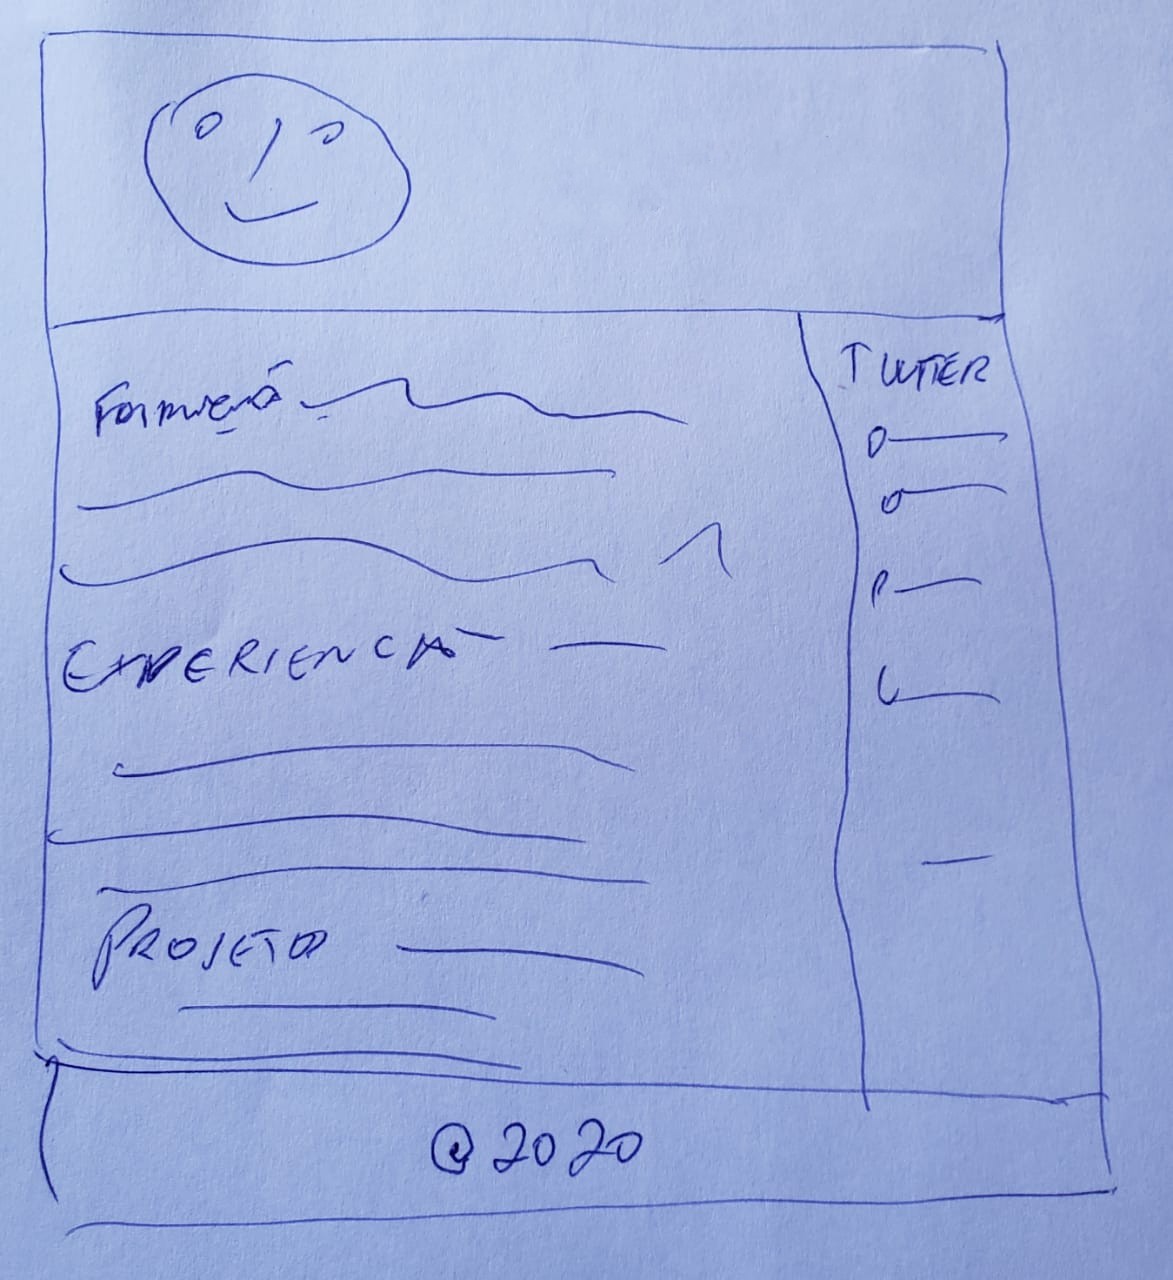 Formação
EXPERIENCIA
PROJETO
TWITTER
@2020